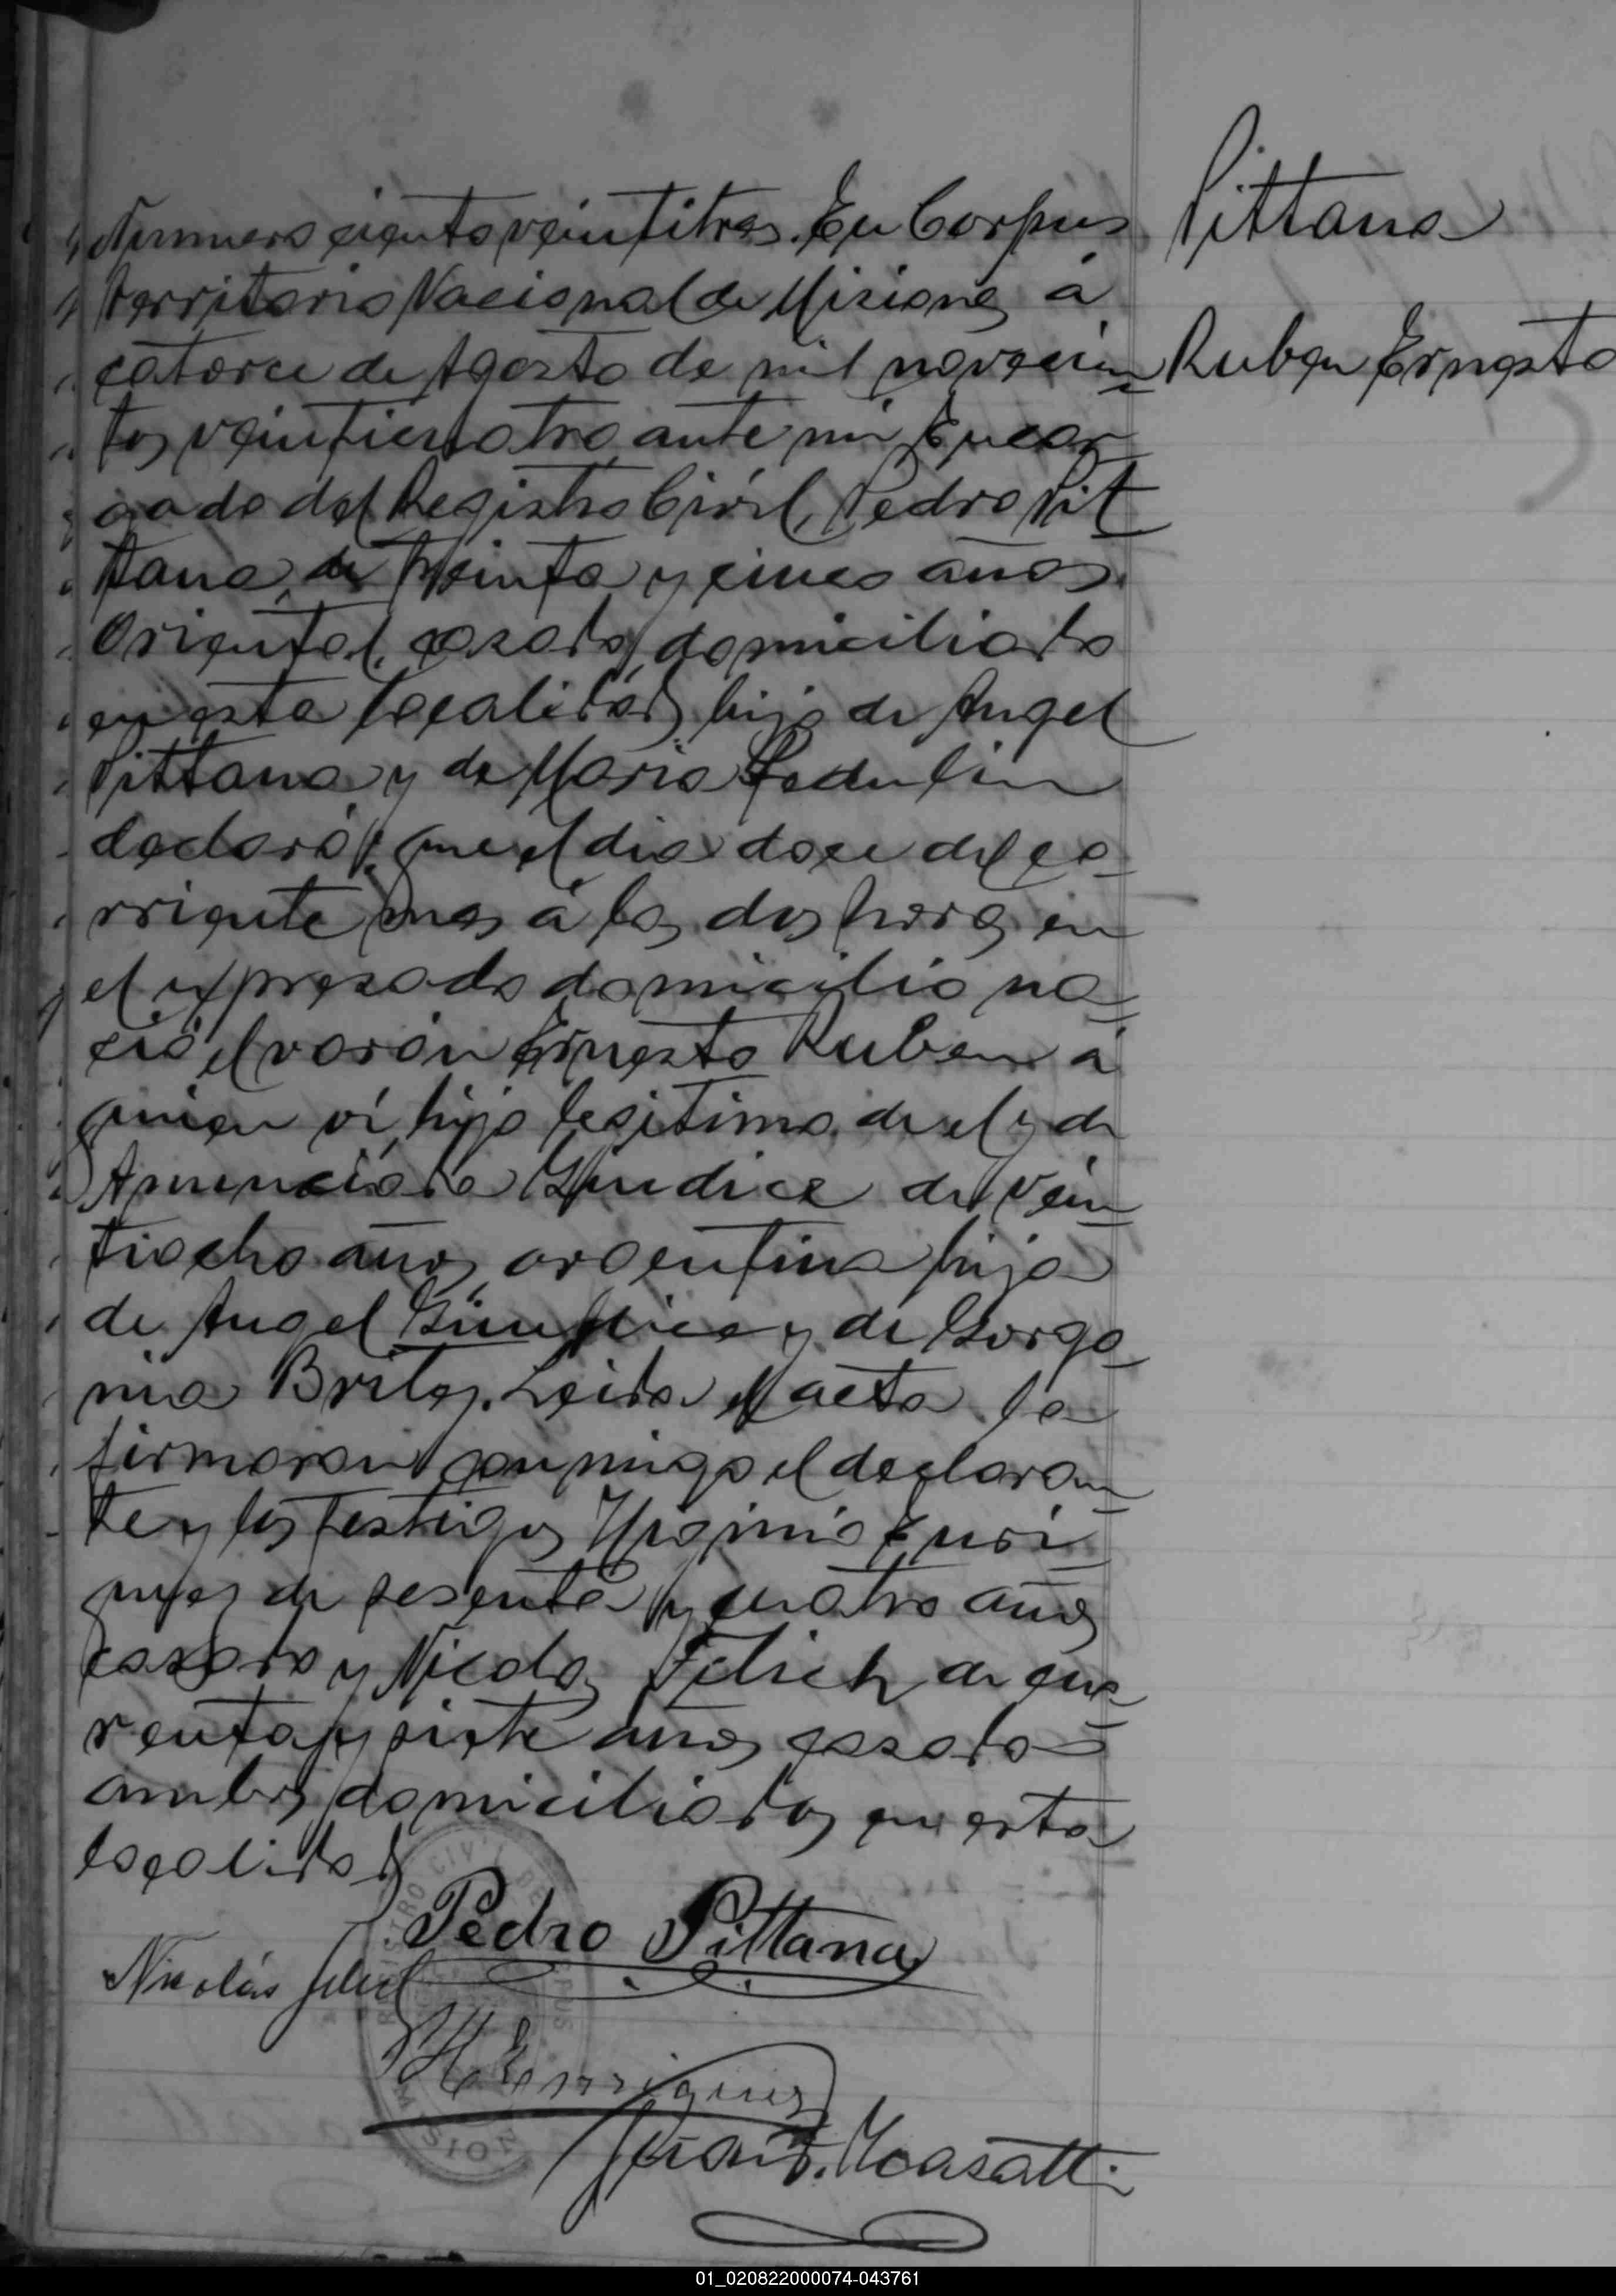 Pittana
Ruben Ernesto
Numero ciento veintitres. En Corpus
Territorio Nacional de Misiones á
catorce de Agosto de mil novecien=
tos veinticuatro ante mi Encar
gado del Registro Civil, Pedro Pit
tana, de treinta y cinco años.
Oriental, casado, domiciliado
en esta localidad, hijo de Angel
Pittana y de Maria
declaró: que el dia doce del co-
rriente mes á las dos horas en
el expresado domicilio na-
ció el varón Ernesto Ruben á
quien ví hijo legitimo de el y de
Anunciada Giudice de vein-
tiocho años, argentina hija
de Angel Giudice y de Gorgo-
nia Britez. Leida el acta la
firmaron conmigo el declaran=
te y los testigos Higinio Enri
quez de sesenta y cuatro años
casado y Nicolas Filich de cua-
renta y siete años casado=
ambos domiciliados en esta
localidad
Pedro Pittana
Nicolás
H Enriquez
REGISTRO CIVIL DE CORPUS
MISIONES
01_020822000074-043761